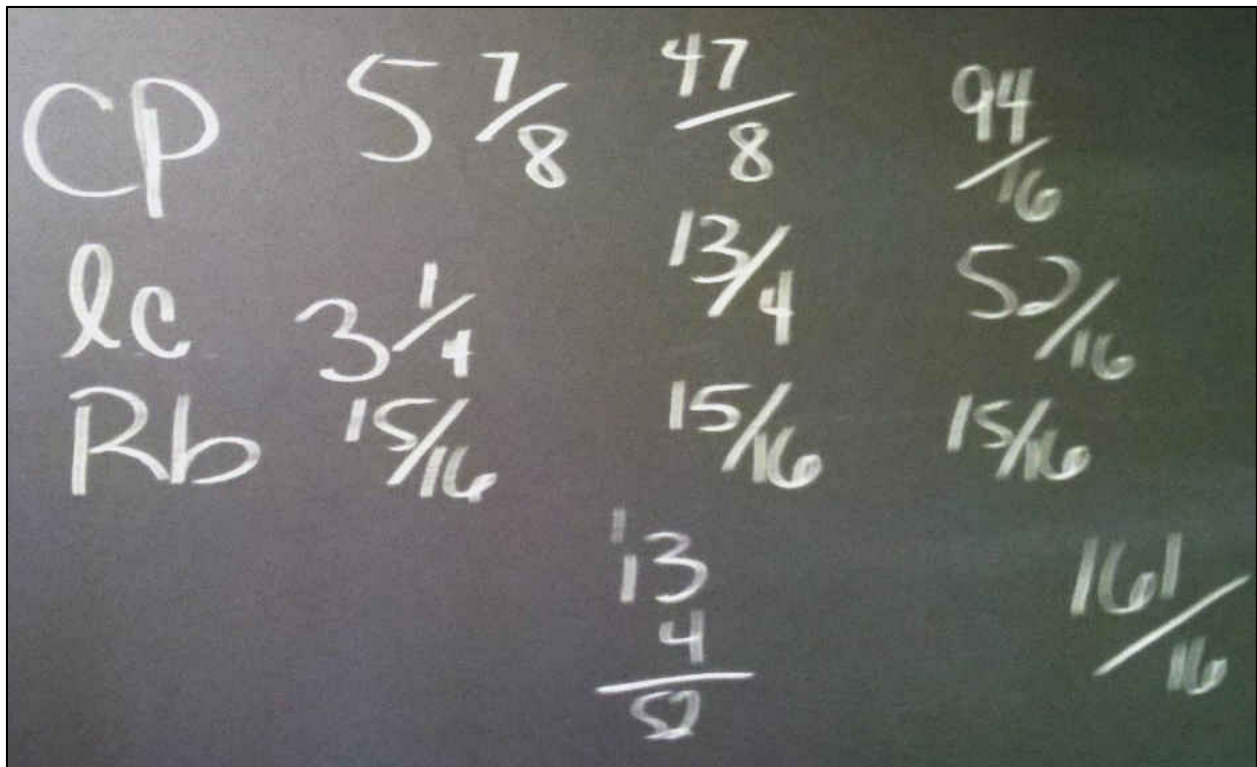 CP 5 7/8 47/8 94/16
lc 3 1/4 13/4 52/16
Rb 15/16 15/16 15/16
1
13
4
52
161/16